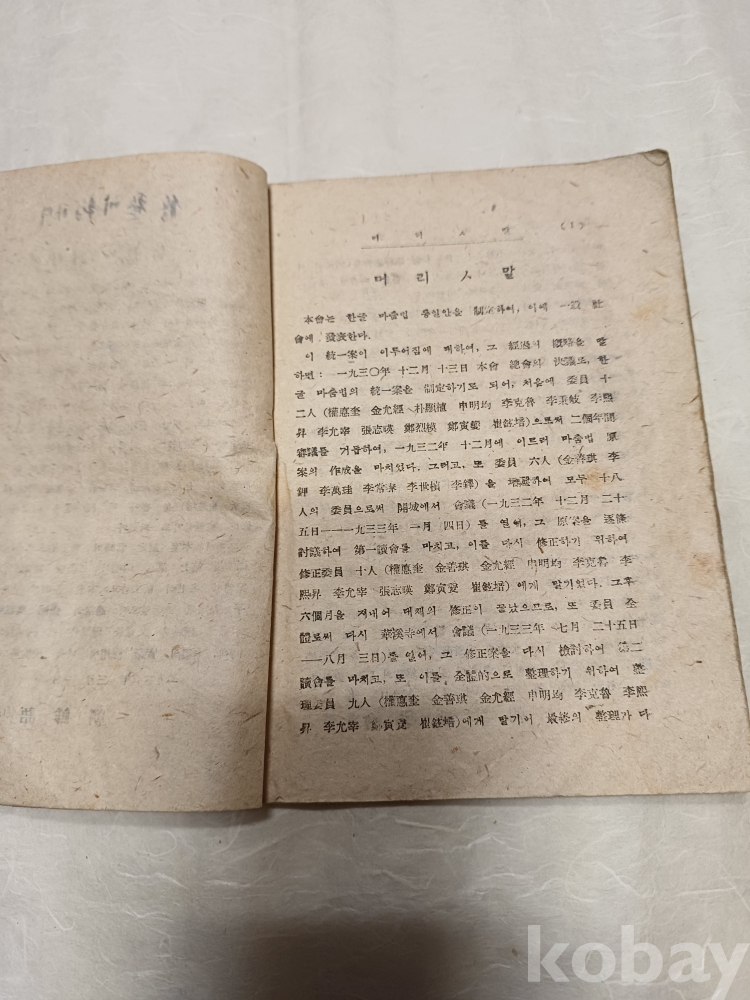 머 리 ㅅ 말 (1)
머 리 ㅅ 말
本會는 한글 마춤법 통일안을 制定하여, 이에 一般 社
會에 發表한다.
이 統一案이 이루어짐에 대하여, 그 經過의 槪略을 말
하면: 一九三〇年 十二月 十三日 本會 總會의 決議로, 한
글 마춤법의 統一案을 制定하기로 되어, 처음에 委員 十
二人 (權悳奎 金允經 朴顯植 申明均 李克魯 李秉岐 李熙
昇 李允宰 張志暎 鄭烈模 鄭寅燮 崔鉉培)으로써 二個年間
審議를 거듭하여, 一九三二年 十二月에 이르러 마춤법 原
案의 作成을 마치었다. 그러고, 또 委員 六人 (金善琪 李
鉀 李萬珪 李常春 李世楨 李鐸)을 增選하여 모두 十八
人의 委員으로써 開城에서 會議 (一九三二年 十二月 二十
五日——一九三三年 一月 四日)를 열어, 그 原案을 逐條
討議하여 第一讀會를 마치고, 이를 다시 修正하기 위하여
修正委員 十人 (權悳奎 金善琪 金允經 申明均 李克魯 李
熙昇 李允宰 張志暎 鄭寅燮 崔鉉培)에게 맡기었다. 그후
六個月을 지내어 대체의 修正이 끝났으므로, 또 委員 全
體로써 다시 華溪寺에서 會議 (一九三三年 七月 二十五日
——八月 三日)를 열어, 그 修正案을 다시 檢討하여 第二
讀會를 마치고, 또 이를 全體的으로 整理하기 위하여 整
理委員 九人 (權悳奎 金善琪 金允經 申明均 李克魯 李熙
昇 李允宰 鄭寅燮 崔鉉培)에게 맡기어 最終의 整理가 다
kobay